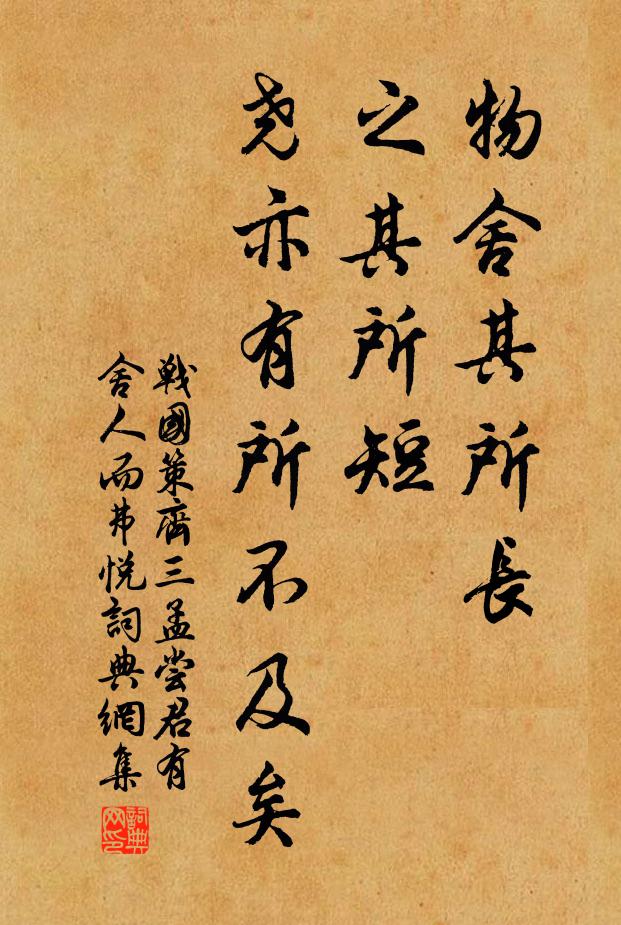 物舍其所長
之其所短
堯亦有所不及矣
戰國策齊三孟尝君有
舍人而弗悅詞典網集
詞典
网印